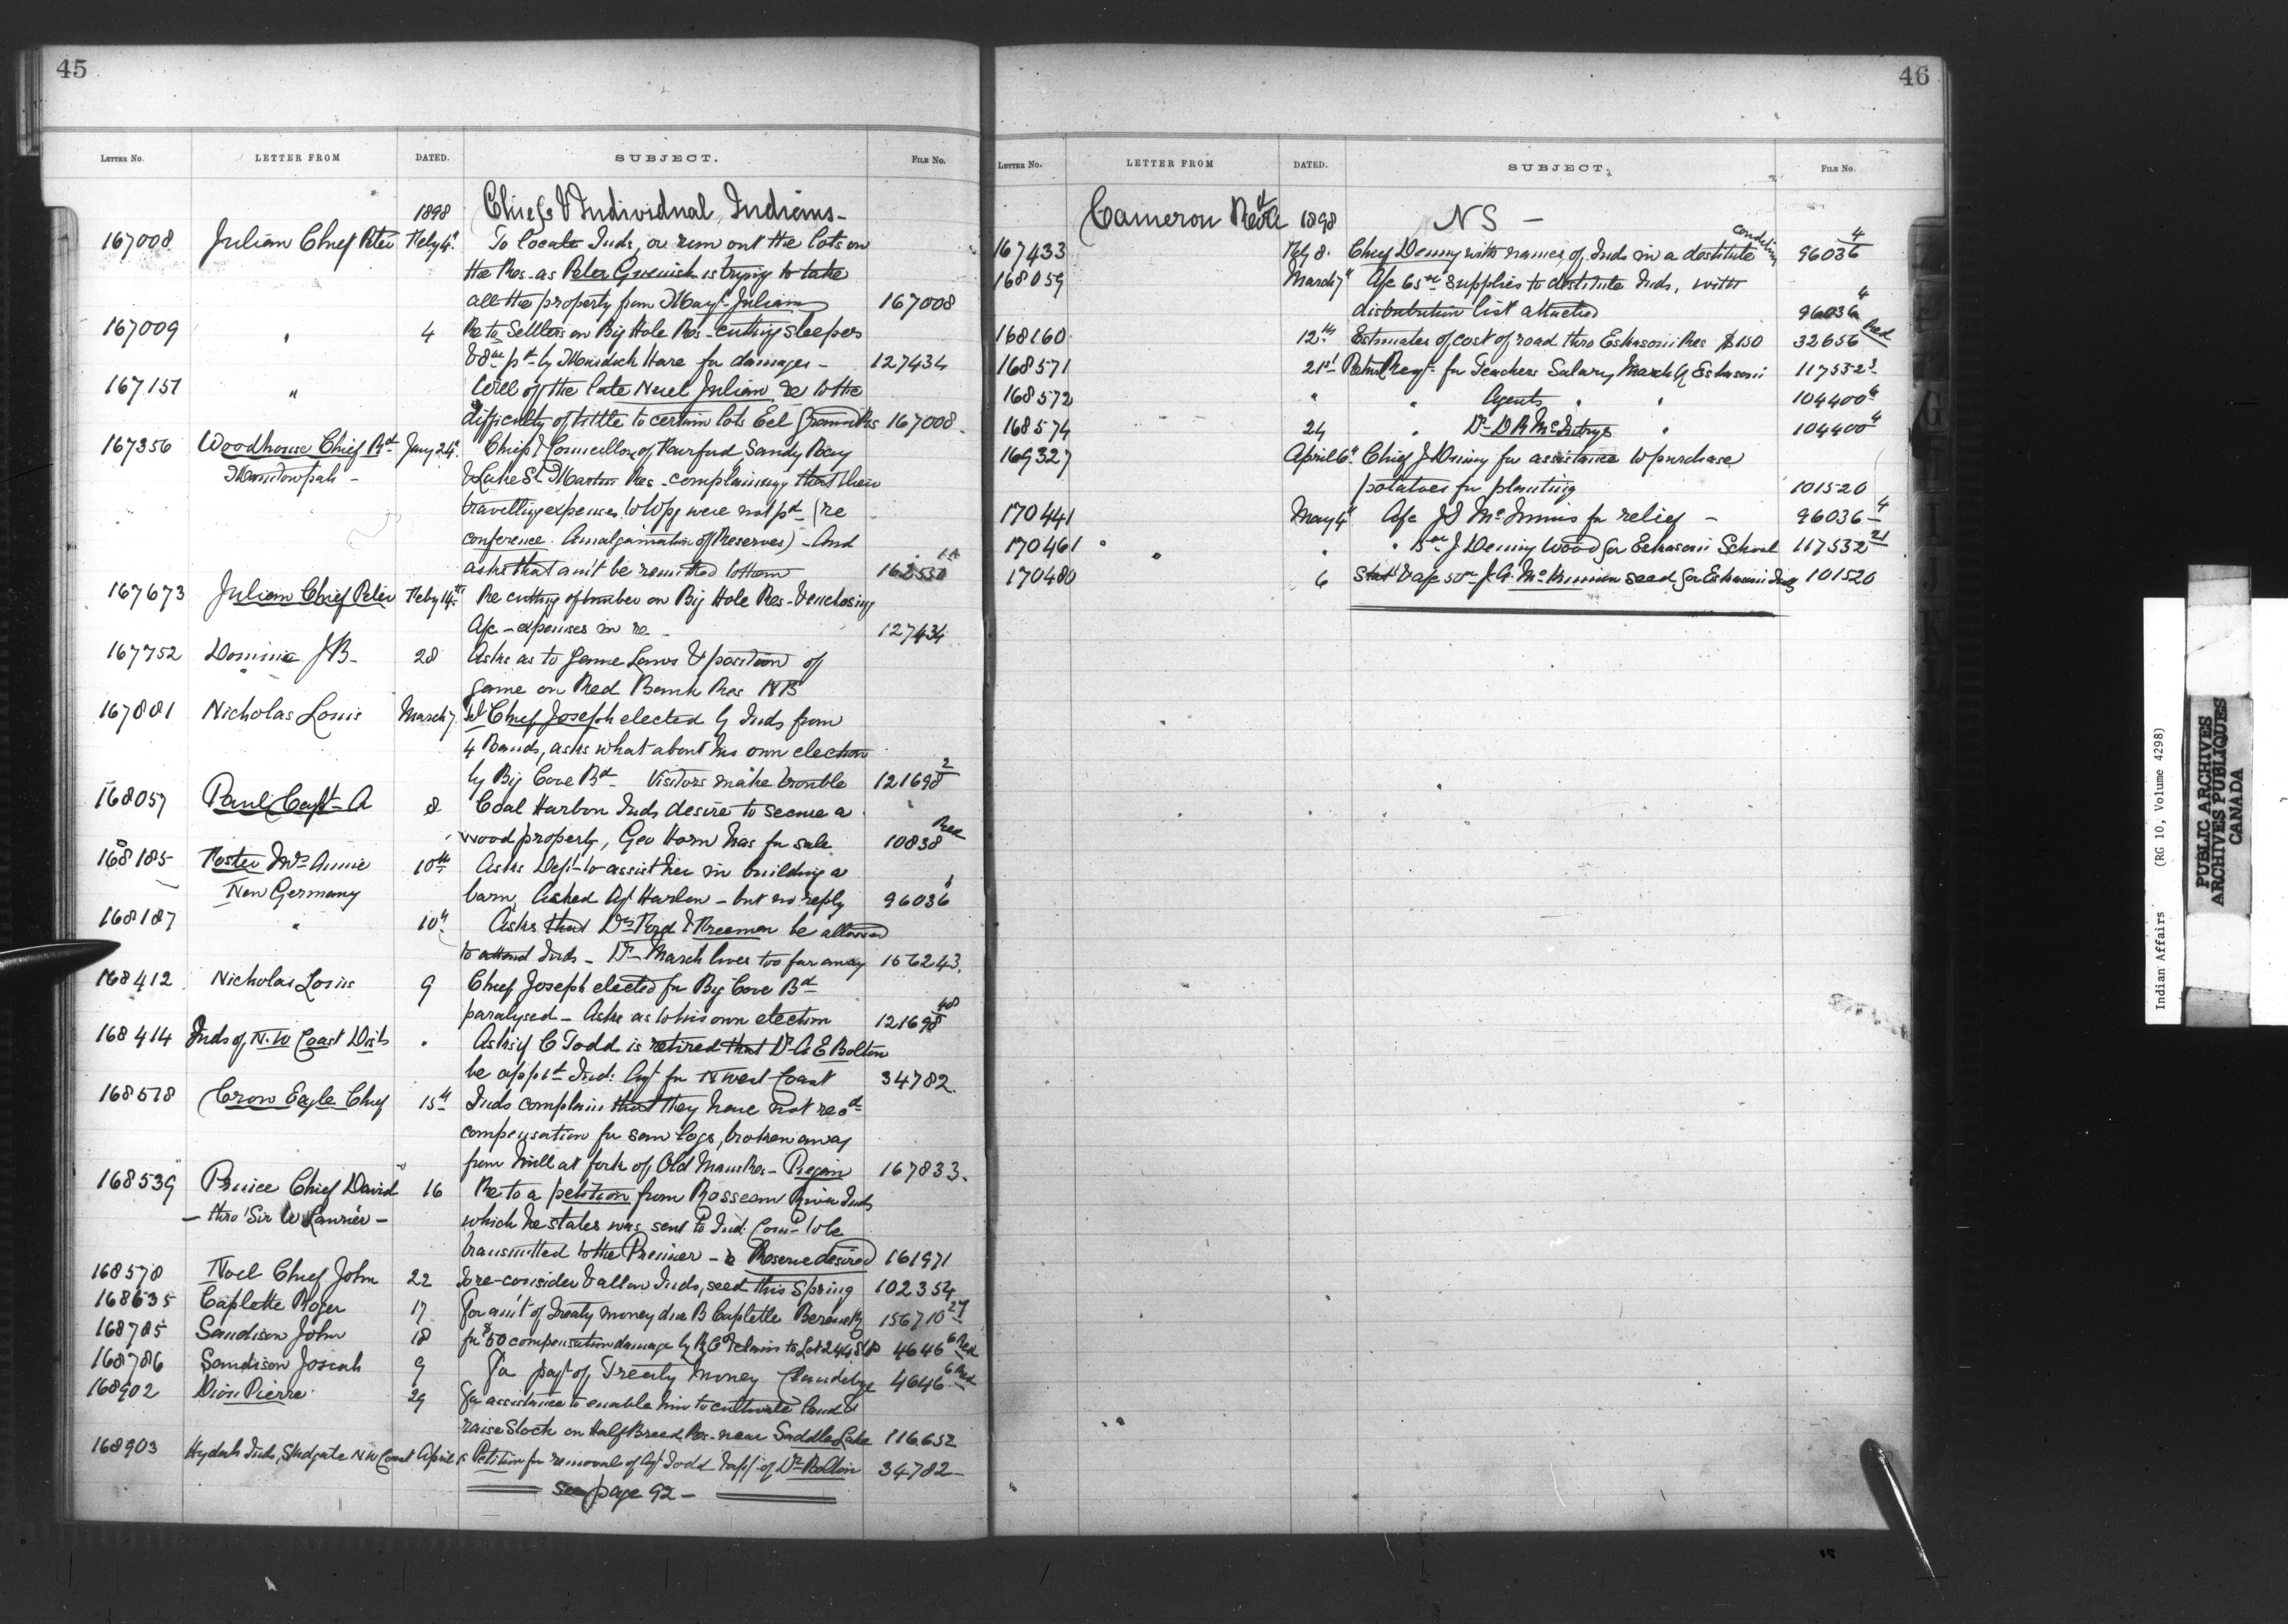 45
LETTER No. LETTER FROM DATED. SUBJECT. FILE No.
1898 Chiefs & Individual Indians -
167008 Julian Chief Peter Feby 4" To locate Inds, or run out the lots on
the Res. as Peter is trying to take
all the property from Julian 167008
167009 " 4 Re to Settlers on Big Hole Res - cutting sleepers
& pd by Hare for damages - 127434
167151 " Will of the late Noel Julian re to the
difficulty of tittle to certain lots Eel Ground Res 167008.
167356 Woodhouse Chief Rd Jany 24" Chief & Councillors of Fairford Sandy Bay
Manitowpah - & Lake St Martin Res - complaining that their
travelling expenses to Wpg were not pd (re
conference. Amalgamation of Reserves) - And
asks that am't be remitted to them
167673 Julian Chief Peter Feby 14th Re cutting of timber on Big Hole Res - & enclosing
A/c - expenses in re - 127434
167752 Dominic J B - 28 Asks as to Game Laws & position of
game on Red Bank Res NB
167881 Nicholas Louis March 7. Chief Joseph elected by Inds from
4 Bands, asks what about his own election
by Big Cove Bd - Visitors make trouble 121698 2
168057 Paul Capt - A 8 Coal Harbor Inds desire to secure a
wood property, Geo Horn has for sale 10838 Red
168185 Foster Mrs Annie 10th Asks Dept to assist her in building a
New Germany barn, Asked Agt Harlow - but no reply 96036
168187 " 10" Asks that Drs Ford & Freeman be allowed
to attend Inds - Dr March lives too far away 156243.
168412 Nicholas Louis 9 Chief Joseph elected for Big Cove Bd
paralysed - Asks as to his own election 121698
168414 Inds of N. W Coast Dists " Asks if C Todd is retired that Dr A E Bolton
be app'td Ind: Agt for N West Coast 34782.
168518 Crow Eagle Chief 15th Inds complain that they have not recd
compensation for saw logs, broken away
from Mill at fork of Old Mans Res - Piegan 167833.
168539 Prince Chief David 16 Re to a petition from Rosseau River Inds
- thro' Sir W Laurier - which he states was sent to Ind: Comr to be
transmitted to the Premier - Reserve desired 161971
168578 Noel Chief John 22 To re-consider & allow Inds, seed this Spring 102354
168635 Caplette Roger 17 For am't of treaty money due B Caplette 156710 27
168785 Sandison John 18 for $50 compensation damage by to Lot 244 St P 4646 6 Red
168786 Sandison Josiah 9 For pay't of Treaty Money 4646 6 Red
168902 Dion Pierre 29 For assistance to enable him to cultivate land &
raise Stock on Half Breed Res. near Saddle Lake 116652
168903 Hydah Inds, Skidgate N W Coast April Petition for removal of Agt Todd & app't of Dr Bolton 34782 -
see page 92 -
46
LETTER No. LETTER FROM DATED. SUBJECT. FILE No.
Cameron 1898 NS -
167433 Feby 8. Chief Denny with names of Inds in a destitute condition 96036 4
168059 March 7" A/c supplies to destitute Inds, with
distribution list attached 96036 4
168160 12th Estimates of cost of road thro Eskasoni Res $150 32656 Red
168571 21st for Teachers Salary March Q Eskasoni 117532
168572 " " Agents " " 104400 4
168574 24 " Dr D R McIntyre " 104400 4
169327 April 6" Chief J Denny for assistance to purchase
potatoes for planting 101520
170441 May 4" A/c J S for relief - 96036 4
170461 " " " J Denny Wood for Eskasoni School 117532 21
170480 6 & A/c seed for Eskasoni Inds 101520
Indian Affairs (RG 10, Volume 4298)
PUBLIC ARCHIVES
ARCHIVES PUBLIQUES
CANADA